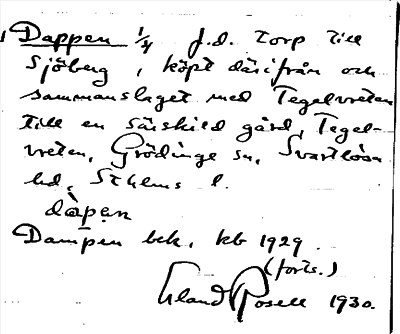 Dappen 1/4 f.d. torp till
Sjöberg, köpt därifrån och
sammanslaget med Tegelvreten
till en särskild gård, Tegel-
vreten, Grödinge sn, Svartlösa
hd, Sthlms l.
dàpen
Dampen bek. kb 1929.
(forts.)
Erland Rosell 1930.